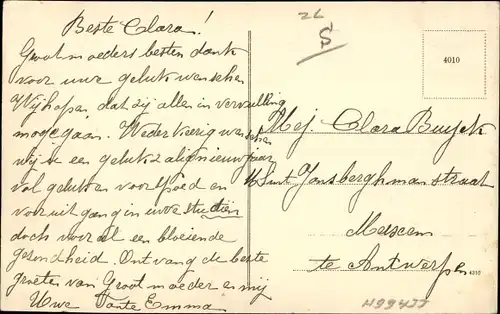 Beste Clara!
Grootmoeders besten dank
voor uwe gelukwenschen
Wij hopen dat zij allen in vervulling
moge gaan. Wederkeerig wenschen
wij u een gelukzalig nieuwjaar
vol geluk en voorspoed en
vooruitgang in uwe studiën
doch vooral een bloeiende
gezondheid. Ontvang de beste
groeten van Grootmoeder en mij
Uwe Tante Emma
2L
S
4010
Mej. Clara Buyck
Sint Jansberghmanstraat
te Antwerpen
4310